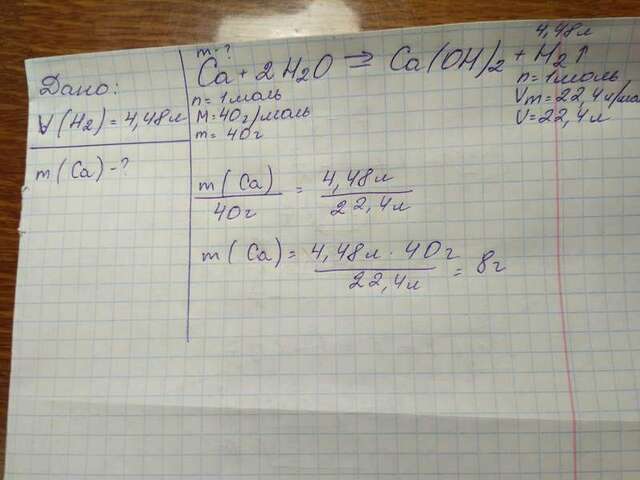 Дано:
V(H₂) = 4,48л
m(Ca) - ?
m - ?
4,48л
Ca + 2H₂O = Ca(OH)₂ + H₂↑
n = 1моль
M = 40г/моль
m = 40г
n = 1моль
Vm = 22,4л/мо
V = 22,4л
m(Ca) / 40г = 4,48л / 22,4л
m(Ca) = 4,48л · 40г / 22,4л = 8г